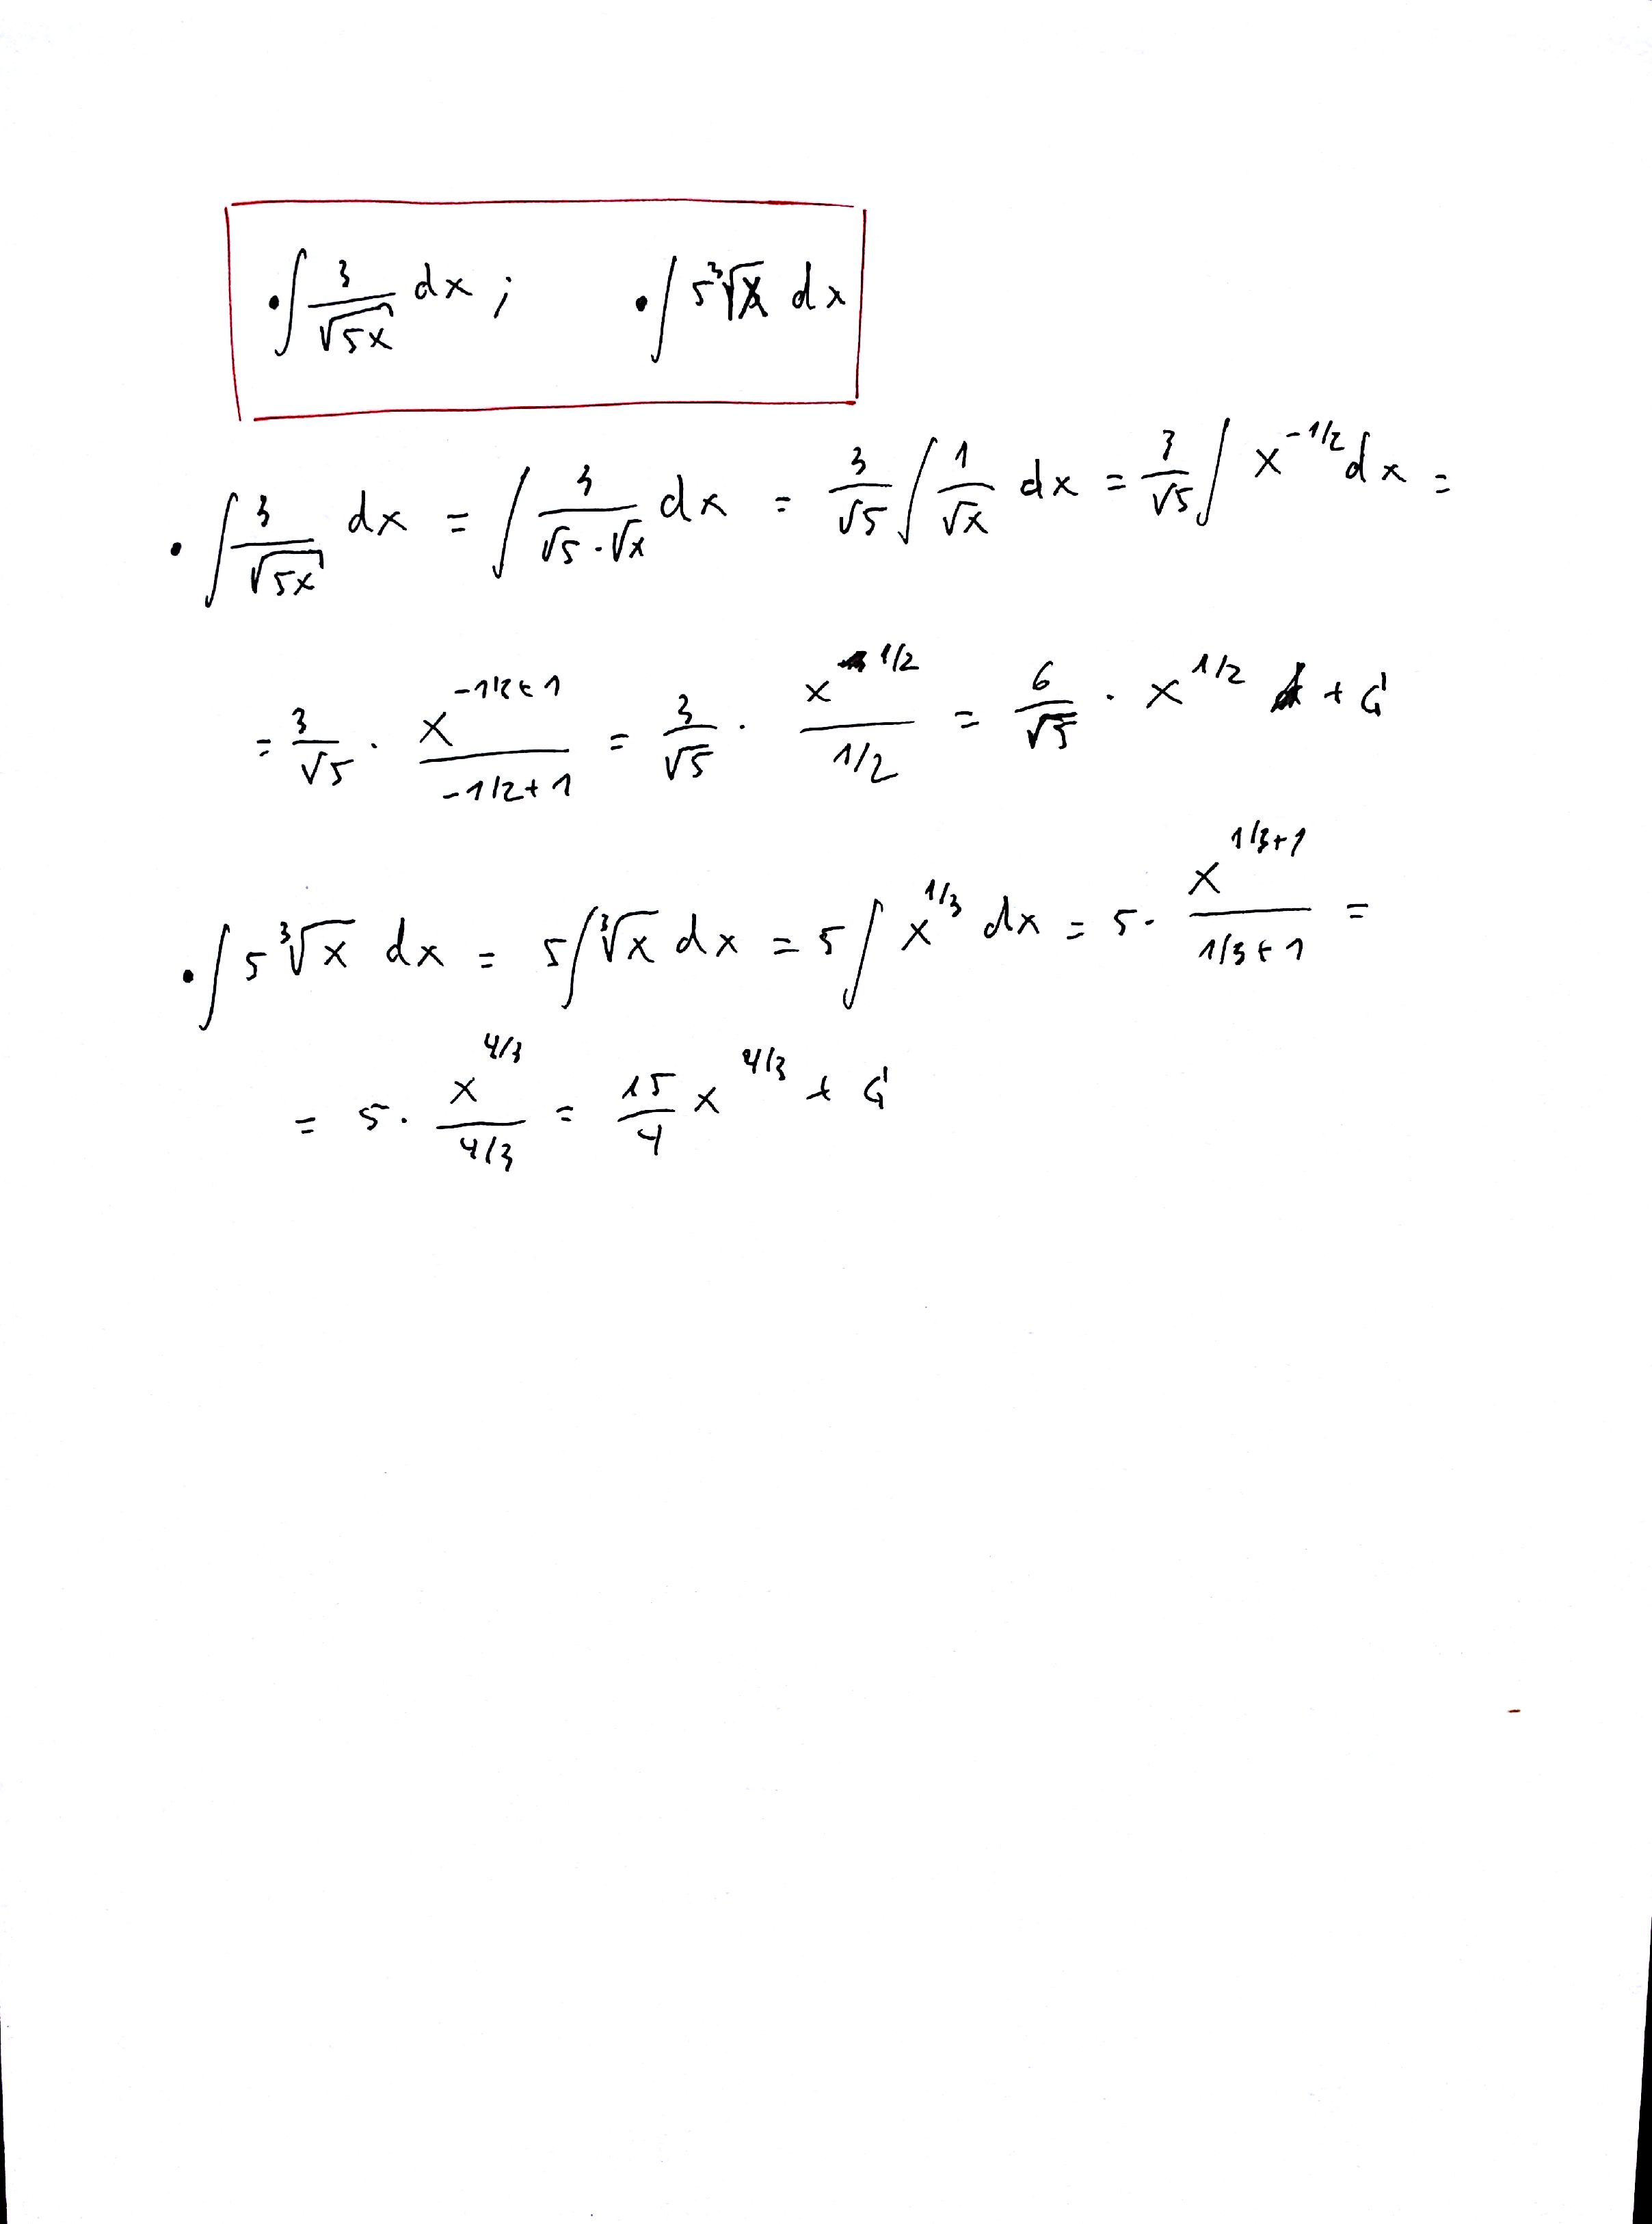 • ∫ 3/√(5x) dx ; • ∫ 5 ∛x dx
• ∫ 3/√(5x) dx = ∫ 3/(√5 · √x) dx = 3/√5 ∫ 1/√x dx = 3/√5 ∫ x^(-1/2) dx =
= 3/√5 · x^(-1/2+1)/(-1/2+1) = 3/√5 · x^(1/2)/(1/2) = 6/√5 · x^(1/2) + C
• ∫ 5 ∛x dx = 5 ∫ ∛x dx = 5 ∫ x^(1/3) dx = 5 · x^(1/3+1)/(1/3+1) =
= 5 · x^(4/3)/(4/3) = 15/4 x^(4/3) + C